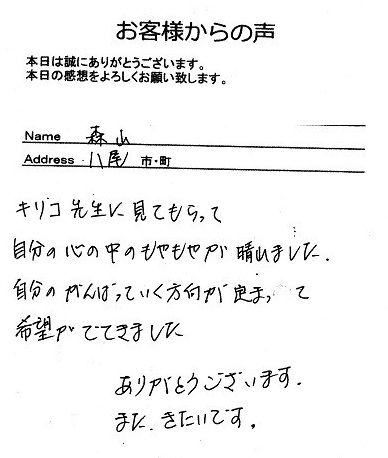 お客様からの声
本日は誠にありがとうございます。
本日の感想をよろしくお願い致します。
Name 森山
Address 八尾 市・町
キリコ先生に見てもらって
自分の心の中のもやもやが晴れました.
自分のがんばっていく方向が定まって
希望がでてきました
ありがとうございます.
また.きたいです。